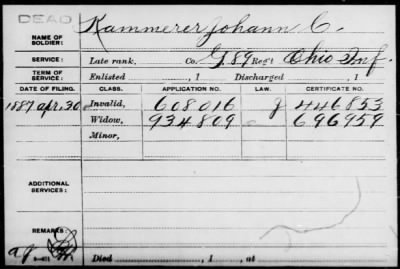 DEAD
NAME OF SOLDIER: Kammerer, Johann C.
SERVICE: Late rank, Co. G, 89 Reg't Ohio Inf.
TERM OF SERVICE: Enlisted , 1 Discharged , 1
DATE OF FILING. CLASS. APPLICATION NO. LAW. CERTIFICATE NO.
1887 Apr. 30 Invalid, 608016 446853
Widow, 934809 696959
Minor,
ADDITIONAL SERVICES:
REMARKS:
Died , 1 , at